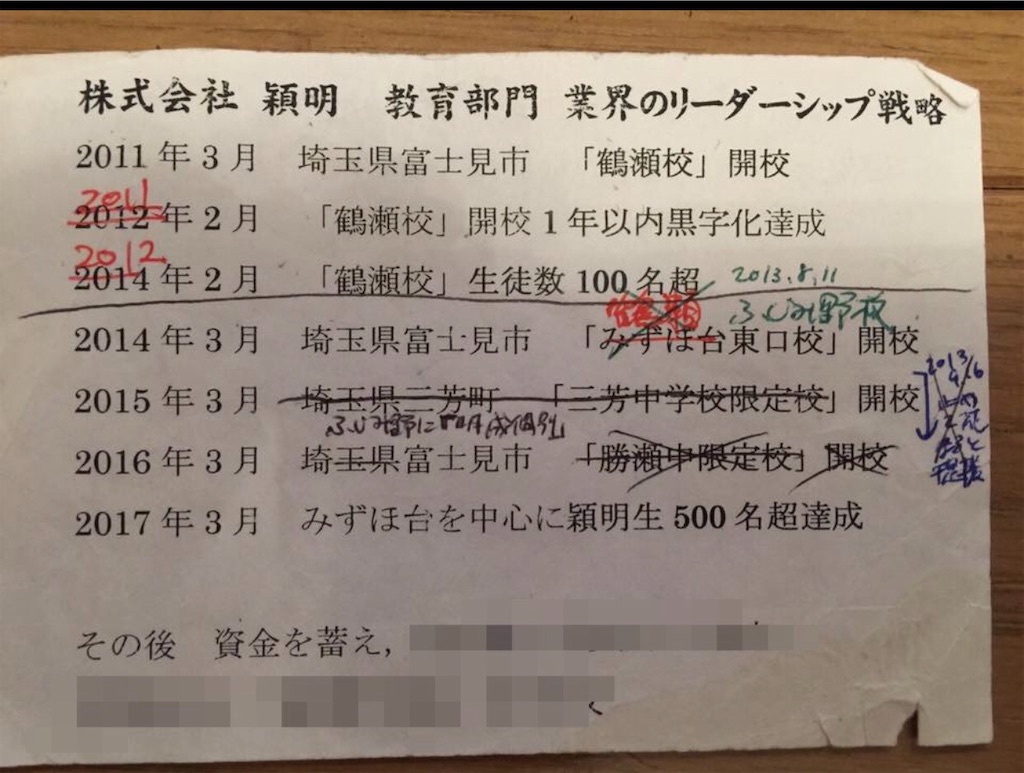 株式会社 穎明 教育部門 業界のリーダーシップ戦略
2011年3月 埼玉県富士見市 「鶴瀬校」開校
2011
2012年2月 「鶴瀬校」開校1年以内黒字化達成
2012
2014年2月 「鶴瀬校」生徒数100名超 2013.8.11
ふじみ野校
2014年3月 埼玉県富士見市 「みずほ台東口校」開校
2015年3月 埼玉県三芳町 「三芳中学校限定校」開校
2016年3月 埼玉県富士見市 「勝瀬中限定校」開校
2017年3月 みずほ台を中心に穎明生500名超達成
その後 資金を蓄え,